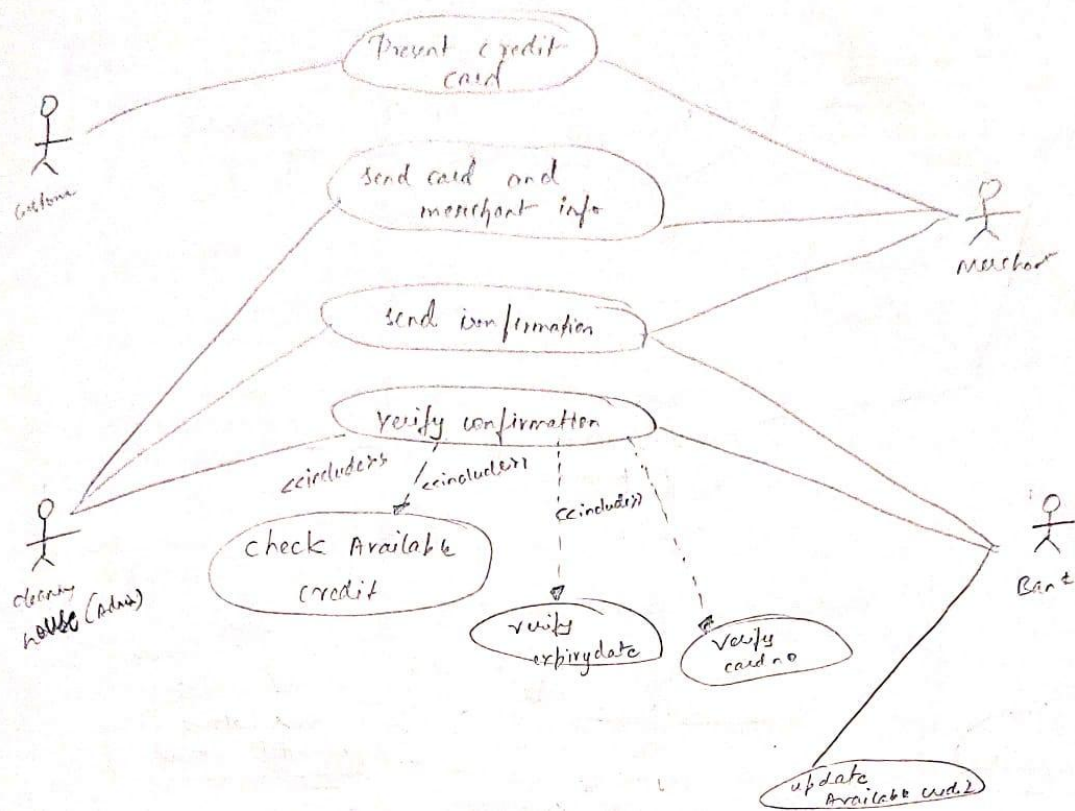 Present credit
card
send card and
merchant info
Merchant
send confirmation
verify confirmation
<<includes>>
<<includes>>
<<includes>>
check Available
credit
clearing
house (Admin)
Bank
verify
expirydate
Verify
card no
update
Available credit